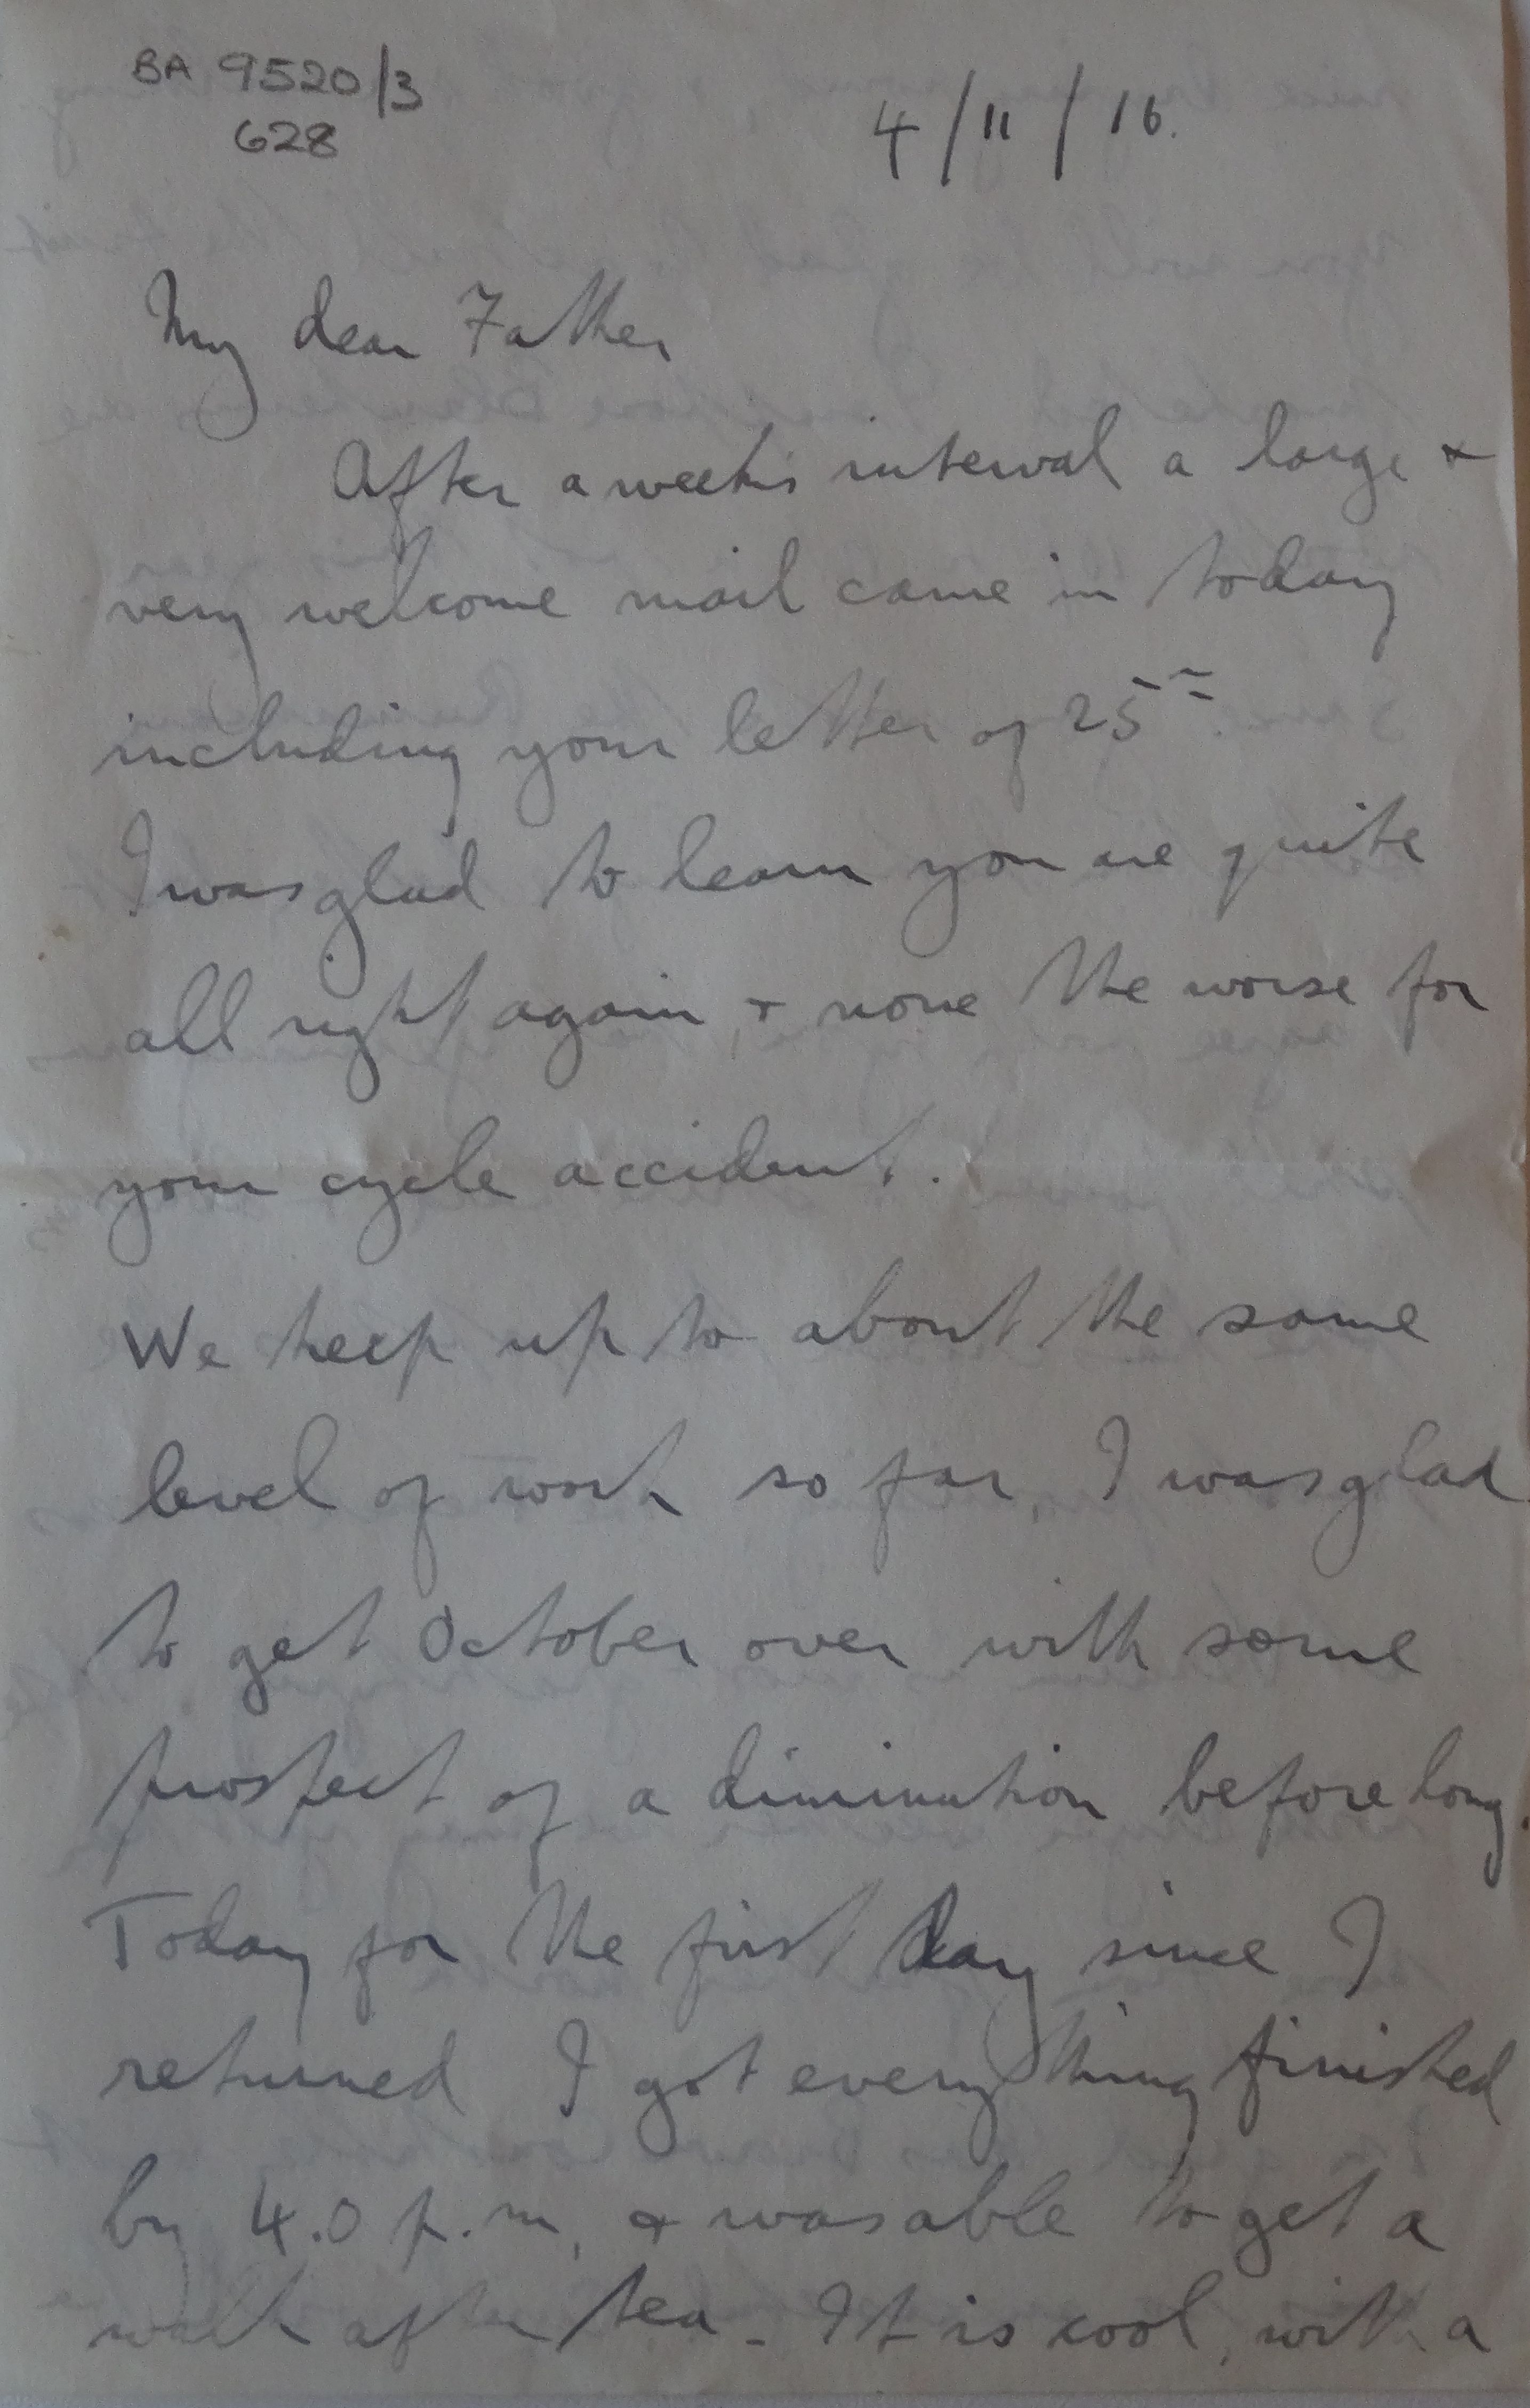 BA 9520/3
628
4/11/16.
My dear Father
After a week's interval a large &
very welcome mail came in today
including your letter of 25th
I was glad to learn you are quite
all right again, & none the worse for
your cycle accident.
We keep up to about the same
level of work so far, I was glad
to get October over with some
prospect of a diminution before long.
Today for the first day since I
returned I got everything finished
by 4.0 p.m, & was able to get a
walk after tea. It is cool, with a